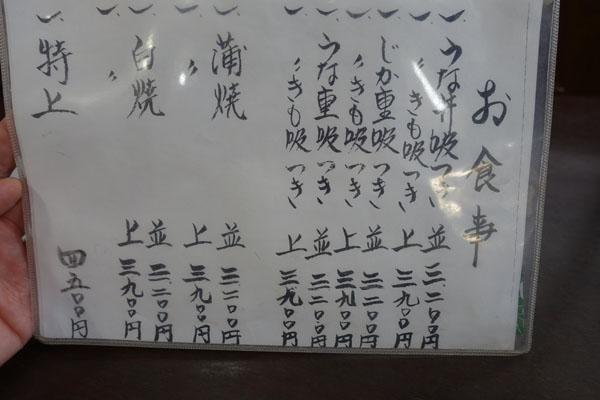 お食事
一、うな丼吸つき 並 三、二〇〇円
一、〃きも吸つき 上 三、九〇〇円
一、じか重吸つき 並 三、二〇〇円
一、〃きも吸つき 上 三、九〇〇円
一、うな重吸つき 並 三、二〇〇円
一、〃きも吸つき 上 三、九〇〇円
一、蒲焼 並 三、二〇〇円
一、〃 上 三、九〇〇円
一、白焼 並 三、二〇〇円
一、〃 上 三、九〇〇円
一、特上 四五〇〇円